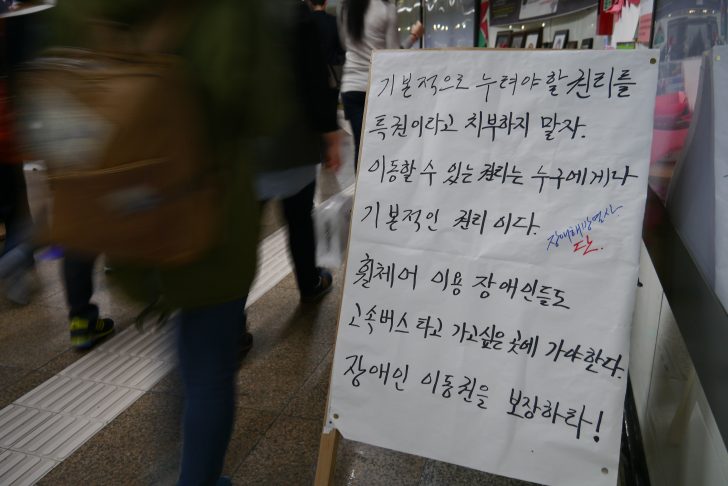 기본적으로 누려야 할 권리를
특권이라고 치부하지 말자.
이동할 수 있는 권리는 누구에게나
기본적인 권리이다.
장애해방열사
단.
휠체어 이용 장애인들도
고속버스 타고 가고싶은 곳에 가야한다.
장애인 이동권을 보장하라!